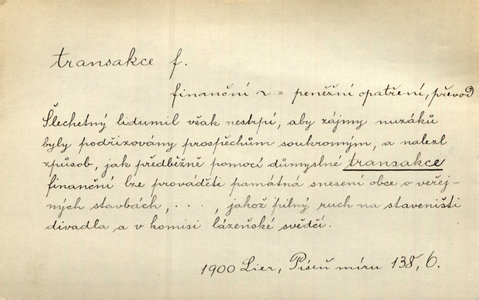 transakce f.
finanční ~ = peněžní opatření, převod
Šlechetný lidumil však nestrpí, aby zájmy nuzáků
byly podřizovány prospěchům soukromým, a nalezl
způsob, jak předběžně pomocí důmyslné transakce
finanční lze prováděti památná snesení obce o veřej-
ných stavbách, . . . , jakož pilný ruch na staveništi
divadla a v komisi lázeňské svědčí.
1900 Lier, Písně míru 138, 6.